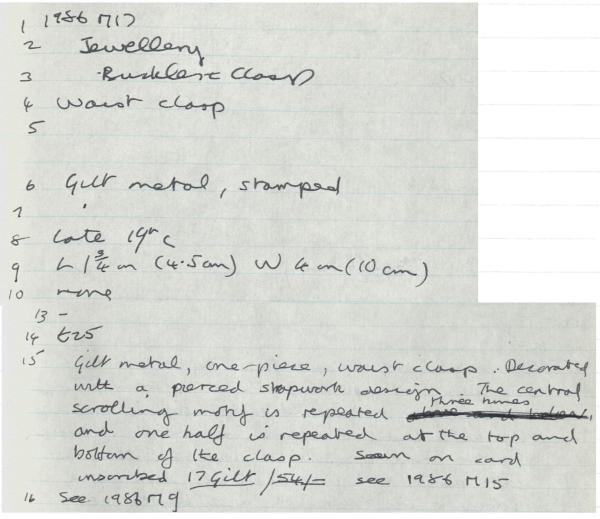 1 1986 M17
2 Jewellery
3 Buckles & Clasps
4 Waist clasp
5
6 Gilt metal, stamped
7
8 Late 19th c
9 L 1 3/4 in (4.5 cm) W 4 in (10 cm)
10 none
13 -
14 £25
15 Gilt metal, one-piece, waist clasp. Decorated
with a pierced strapwork design. The central
scrolling motif is repeated three times
and one half is repeated at the top and
bottom of the clasp. Sewn on card
inscribed 17 Gilt /54/= see 1986 M15
16 See 1986 M9